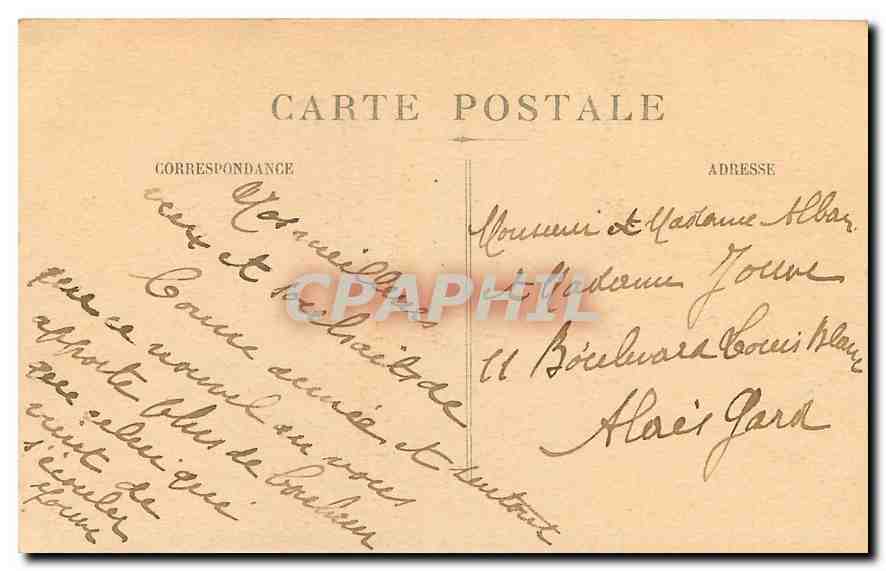 CARTE POSTALE
CORRESPONDANCE
ADRESSE
Mes meilleurs
vœux et souhaits de
bonne année et surtout
que ce nouvel an vous
apporte plus de bonheur
que celui qui
vient de
s'écouler
Monsieur et Madame Alban
et Madame Jouve
11 Boulevard Louis Blanc
Alais Gard
CPAPHIL